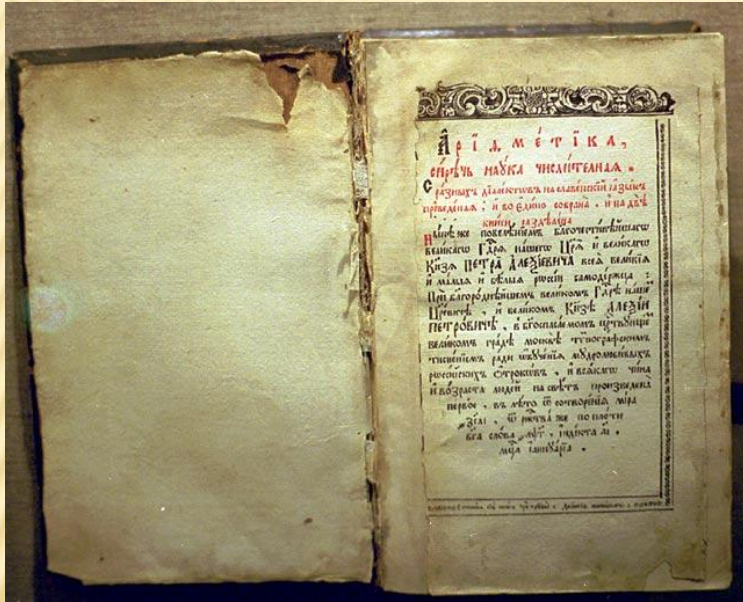 Арїѳме́тїка,
си́рѣчь наꙋ́ка числи́телная.
С ра́зныхъ дїале́ктѡвъ на славе́нскїй ꙗзы́къ
преведе́ная, и во еди́но собрана̀, и на двѣ̀
кни́ги раздѣлена̀
Ны́нѣ же повелѣ́нїемъ благочести́вѣйшагѡ
вели́кагѡ Гдⷭ҇ря на́шегѡ Цр҃ѧ̀ и вели́кагѡ
Кн҃зѧ ПЕТРА̀ А҆ЛЕѮІ́ЕВИЧА всеѧ̀ вели́кїѧ
и ма́лыѧ и бѣ́лыѧ рѡссі́и самоде́ржца:
При благоро́днѣйшемъ вели́комъ Гдⷭ҇рѣ на́шемъ
Цр҃е́вичѣ, и вели́комъ Кн҃зѣ А҆ЛЕѮІ́И
ПЕТРО́ВИЧѢ, в бг҃оспаса́емомъ црⷭ҇твꙋющемъ
вели́комъ гра́дѣ москвѣ̀ тѵпогра́фскимъ
тисне́нїемъ ра́ди ѡбꙋче́нїѧ мꙋдролюби́выхъ
рѡссі́йскихъ ѻ҆́трокѡвъ, и всѧ́кагѡ чи́на
и во́зраста люде́й на свѣ́тъ произведена̀
пе́рвое, въ лѣ́то ѿ сотворе́нїѧ мі́ра
ѿ ржⷭ҇тва̀ же по пло́ти
бг҃а сло́ва ҂аѱг҃, їнді́кта аі҃,
мцⷭ҇а їаннꙋа́рїа.